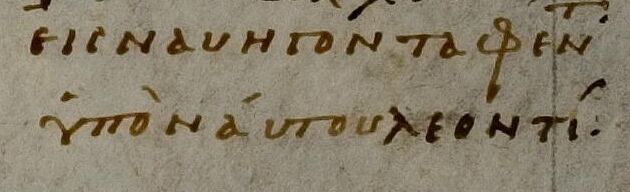 εις ναυηγον ταφεντ
ὑπὸ ναύτου λεοντί: